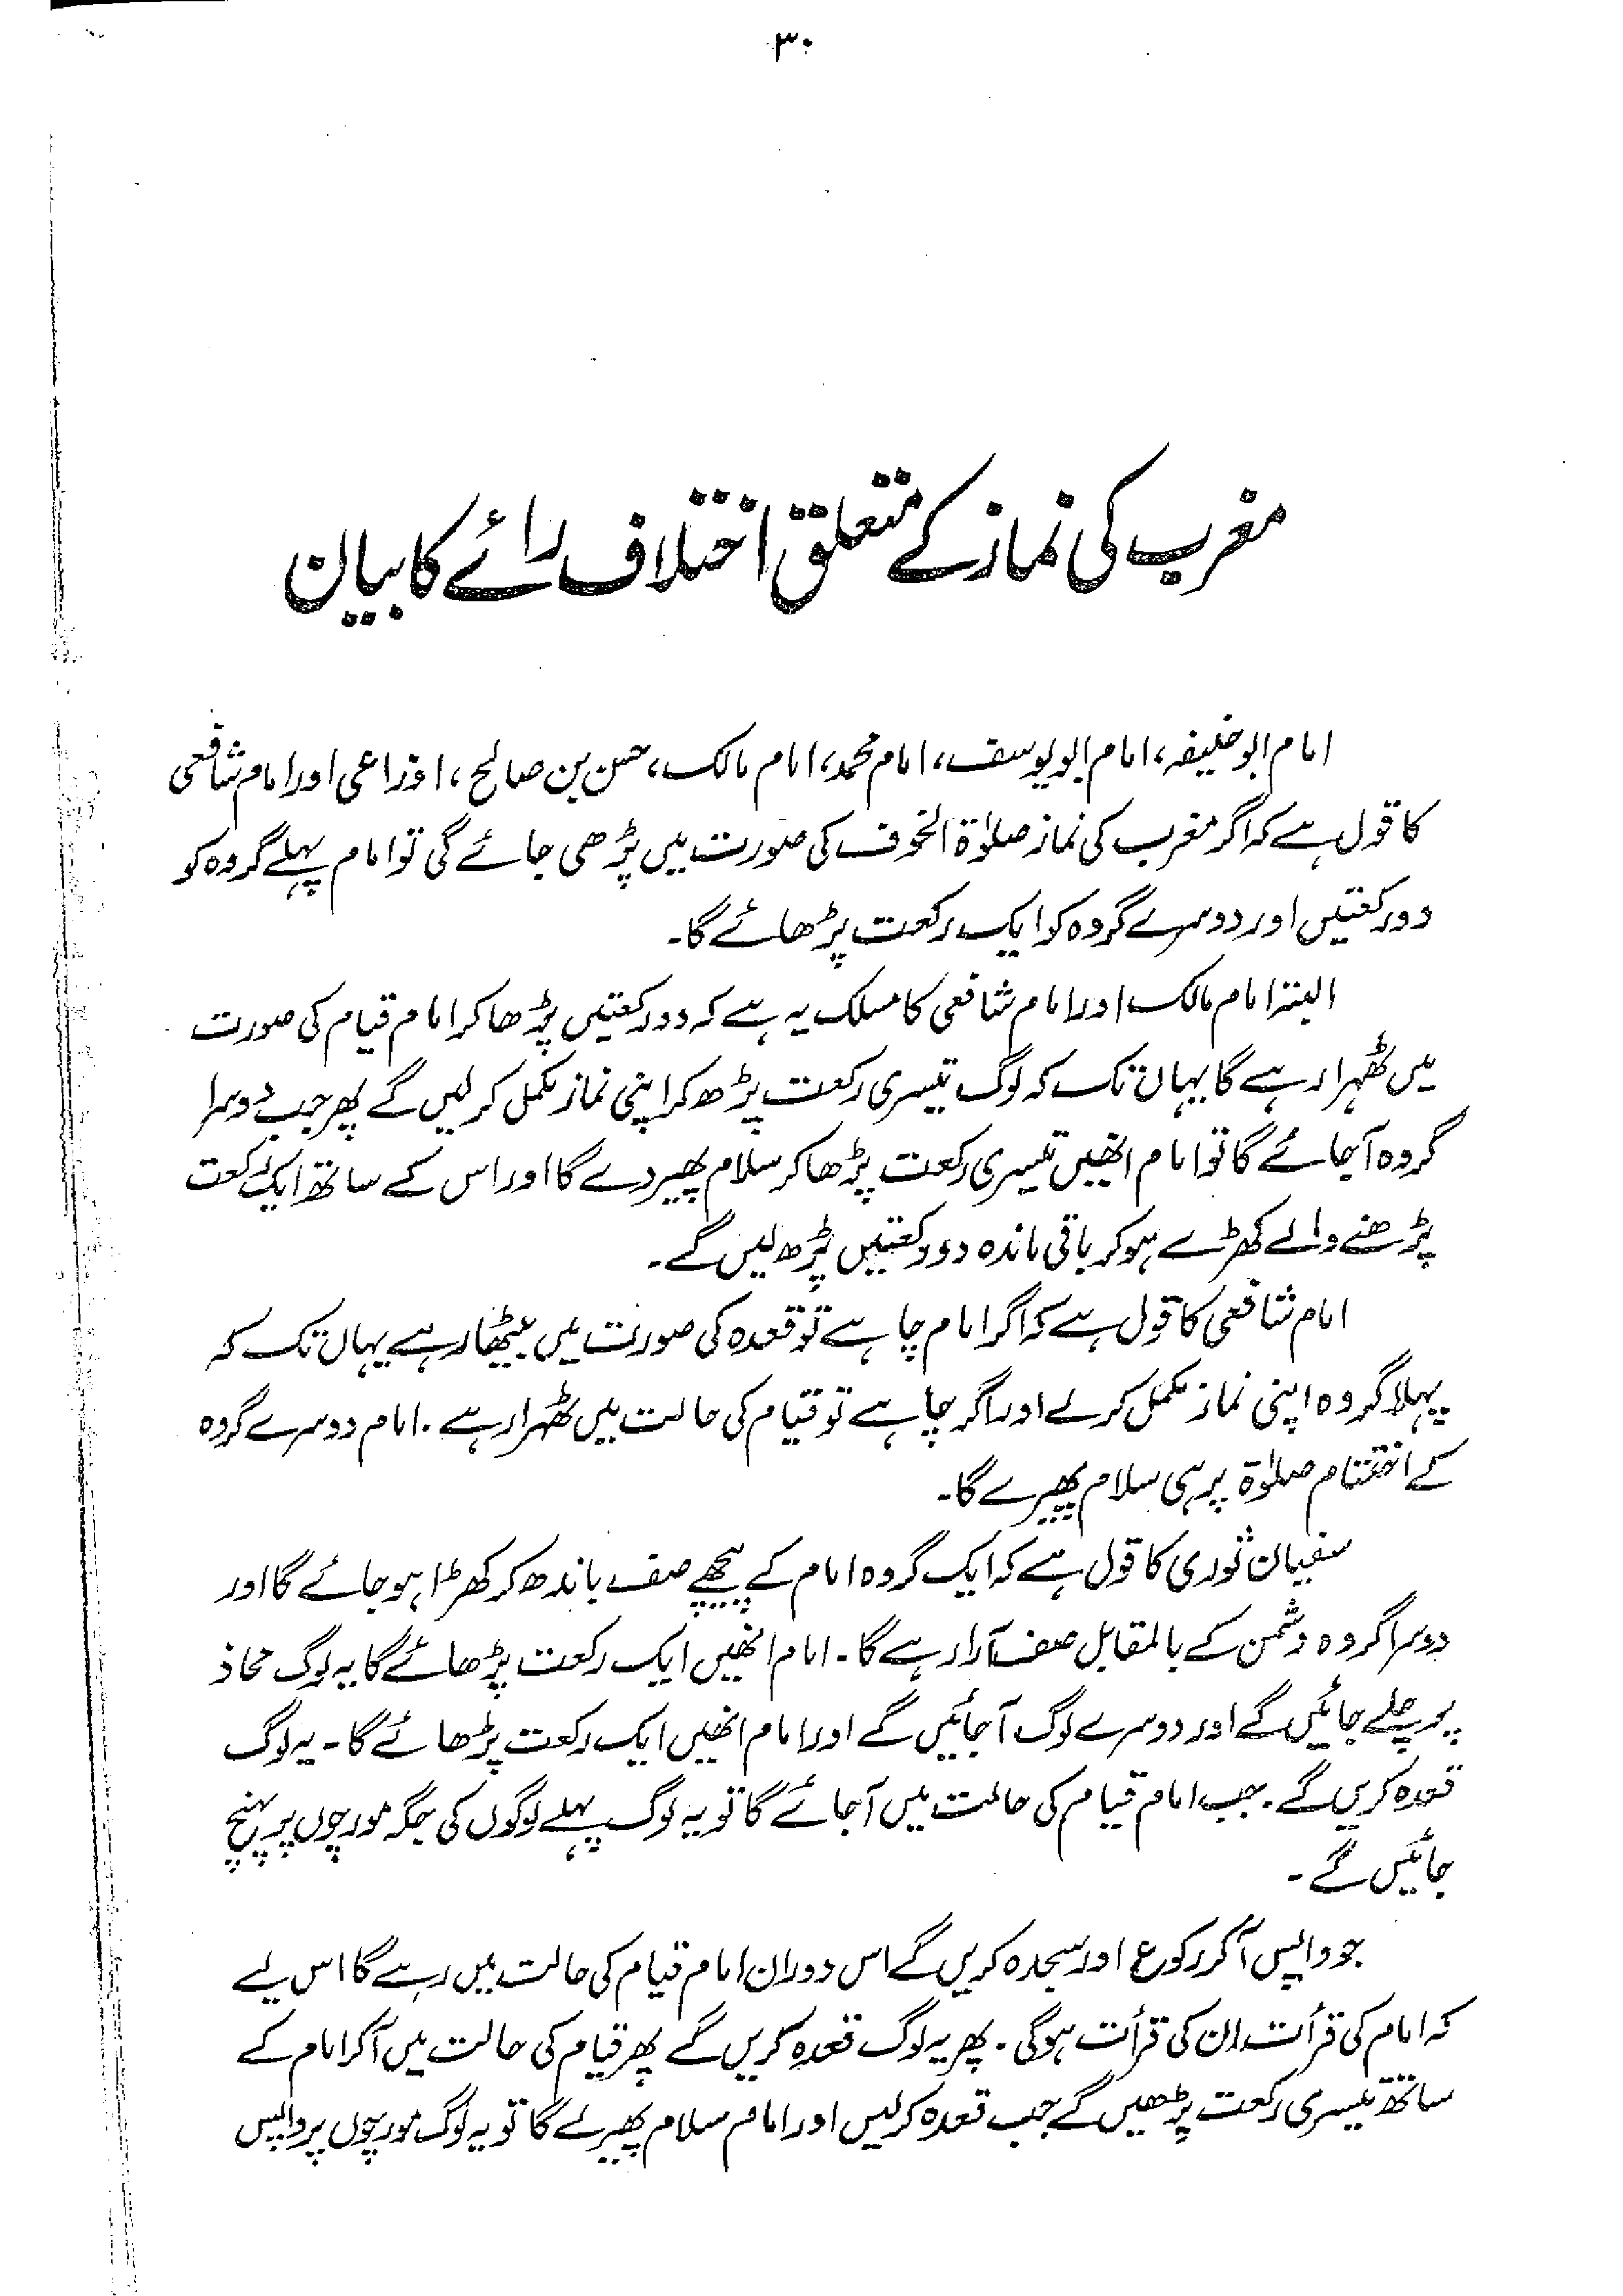 ۳۰
مغرب کی نماز کے متعلق اختلاف رائے کا بیان
امام ابو حنیفہ، امام ابو یوسف، امام محمد، امام مالک، حسن بن صالح، اوزاعی اور امام شافعی
کا قول ہے کہ اگر مغرب کی نماز صلوٰۃ الخوف کی صورت میں پڑھی جائے گی تو امام پہلے گروہ کو
دو رکعتیں اور دوسرے گروہ کو ایک رکعت پڑھائے گا۔
البتہ امام مالک اور امام شافعی کا مسلک یہ ہے کہ دو رکعتیں پڑھا کر امام قیام کی صورت
میں ٹھہرا رہے گا یہاں تک کہ لوگ تیسری رکعت پڑھ کر اپنی نماز مکمل کر لیں گے پھر جب دوسرا
گروہ آجائے گا تو امام انھیں تیسری رکعت پڑھا کر سلام پھیر دے گا اور اس کے ساتھ ایک رکعت
پڑھنے والے کھڑے ہو کر باقی ماندہ دو رکعتیں پڑھ لیں گے۔
امام شافعی کا قول ہے کہ اگر امام چاہے تو قعدہ کی صورت میں بیٹھا رہے یہاں تک کہ
پہلا گروہ اپنی نماز مکمل کر لے اور اگر چاہے تو قیام کی حالت میں ٹھہرا رہے۔ امام دوسرے گروہ
کے اختتام صلوٰۃ پر ہی سلام پھیرے گا۔
سفیان ثوری کا قول ہے کہ ایک گروہ امام کے پیچھے صف باندھ کر کھڑا ہو جائے گا اور
دوسرا گروہ دشمن کے بالمقابل صف آرا رہے گا۔ امام انھیں ایک رکعت پڑھائے گا یہ لوگ محاذ
پر چلے جائیں گے اور دوسرے لوگ آجائیں گے اور امام انھیں ایک رکعت پڑھائے گا۔ یہ لوگ
قعدہ کریں گے۔ جب امام قیام کی حالت میں آجائے گا تو یہ لوگ پہلے لوگوں کی جگہ مورچوں پر پہنچ
جائیں گے۔
جو واپس آکر رکوع اور سجدہ کریں گے اس دوران امام قیام کی حالت میں رہے گا اس لیے
کہ امام کی قرأت ان کی قرأت ہوگی۔ پھر یہ لوگ قعدہ کریں گے پھر قیام کی حالت میں آکر امام کے
ساتھ تیسری رکعت پڑھیں گے جب قعدہ کرلیں اور امام سلام پھیرلے گا تو یہ لوگ مورچوں پر واپس